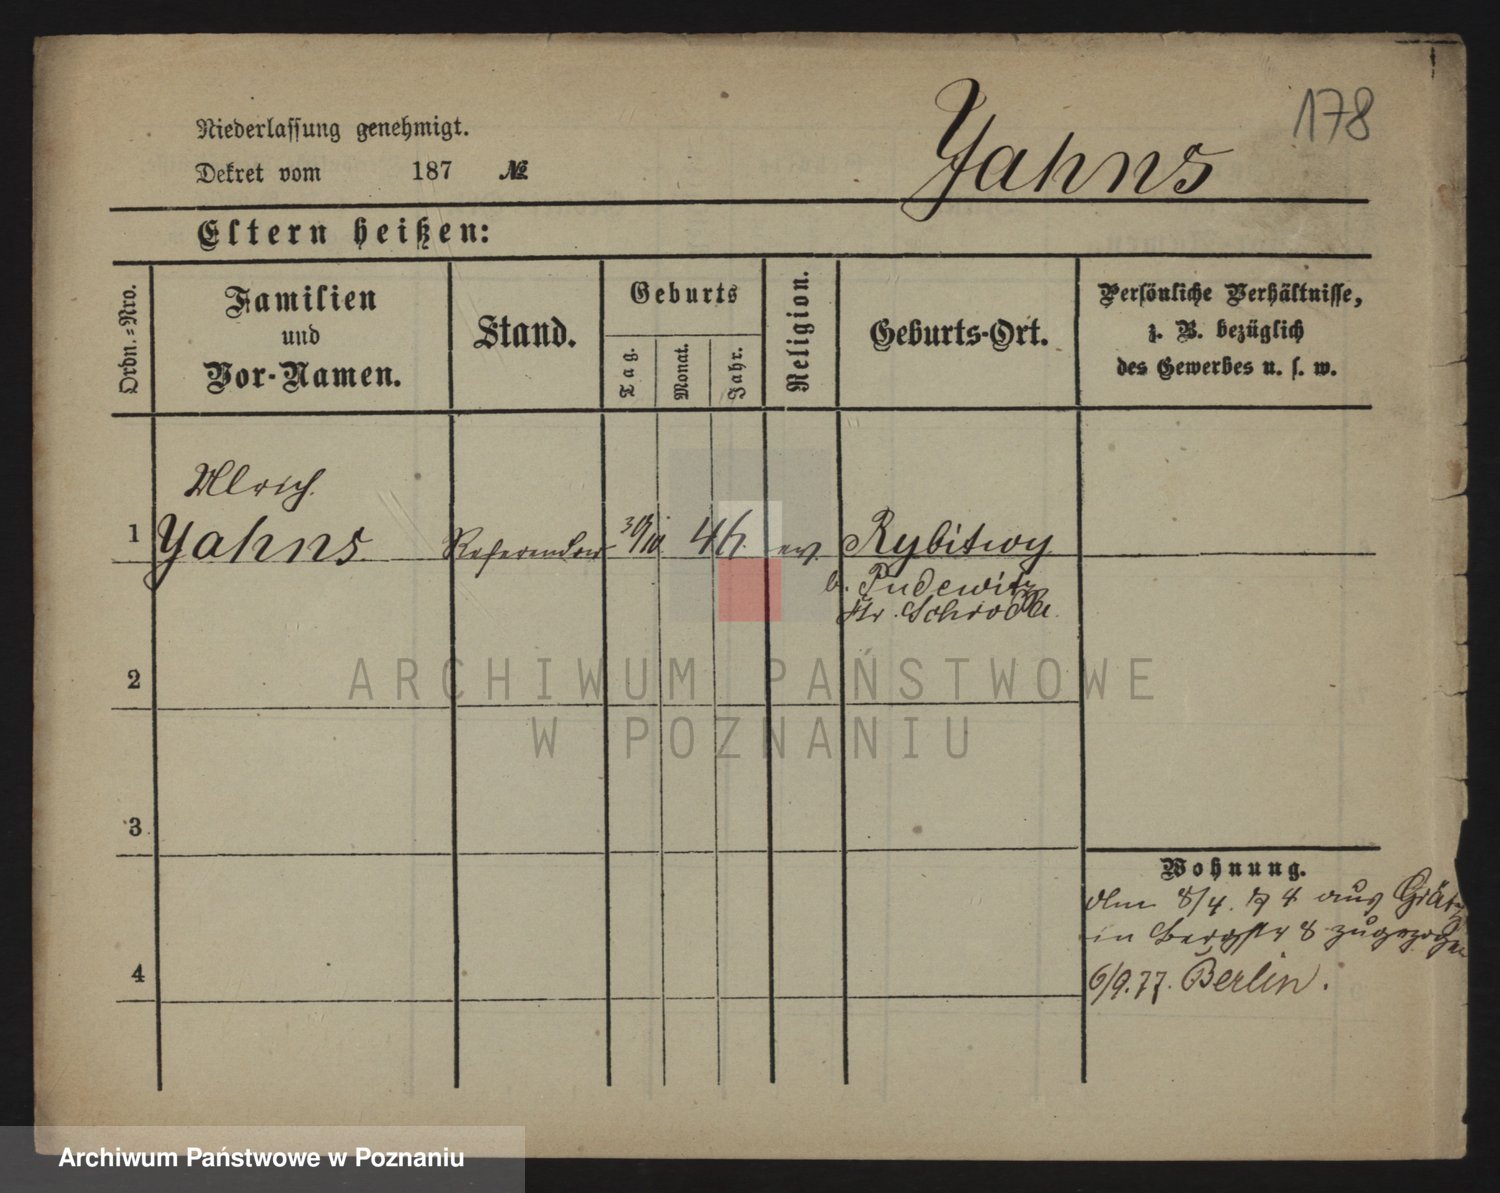 178
Niederlassung genehmigt.
Dekret vom 187 №
Jahns
Eltern heißen:
Ordn.-Nro.
Familien
und
Vor-Namen.
Stand.
Geburts
Tag.
Monat.
Jahr.
Religion.
Geburts-Ort.
Persönliche Verhältnisse,
z. B. bezüglich
des Gewerbes u. s. w.
Ulrich
1 Jahns. Referendar 46. ev. Rybitwy
b. Pudewitz
Kr. Schroda.
2
3
4
Wohnung.
den 8/4. 74 aus Grätz
in Bergstr 8 zugezogen
6/9.77. Berlin.
ARCHIWUM PAŃSTWOWE
W POZNANIU
Archiwum Państwowe w Poznaniu